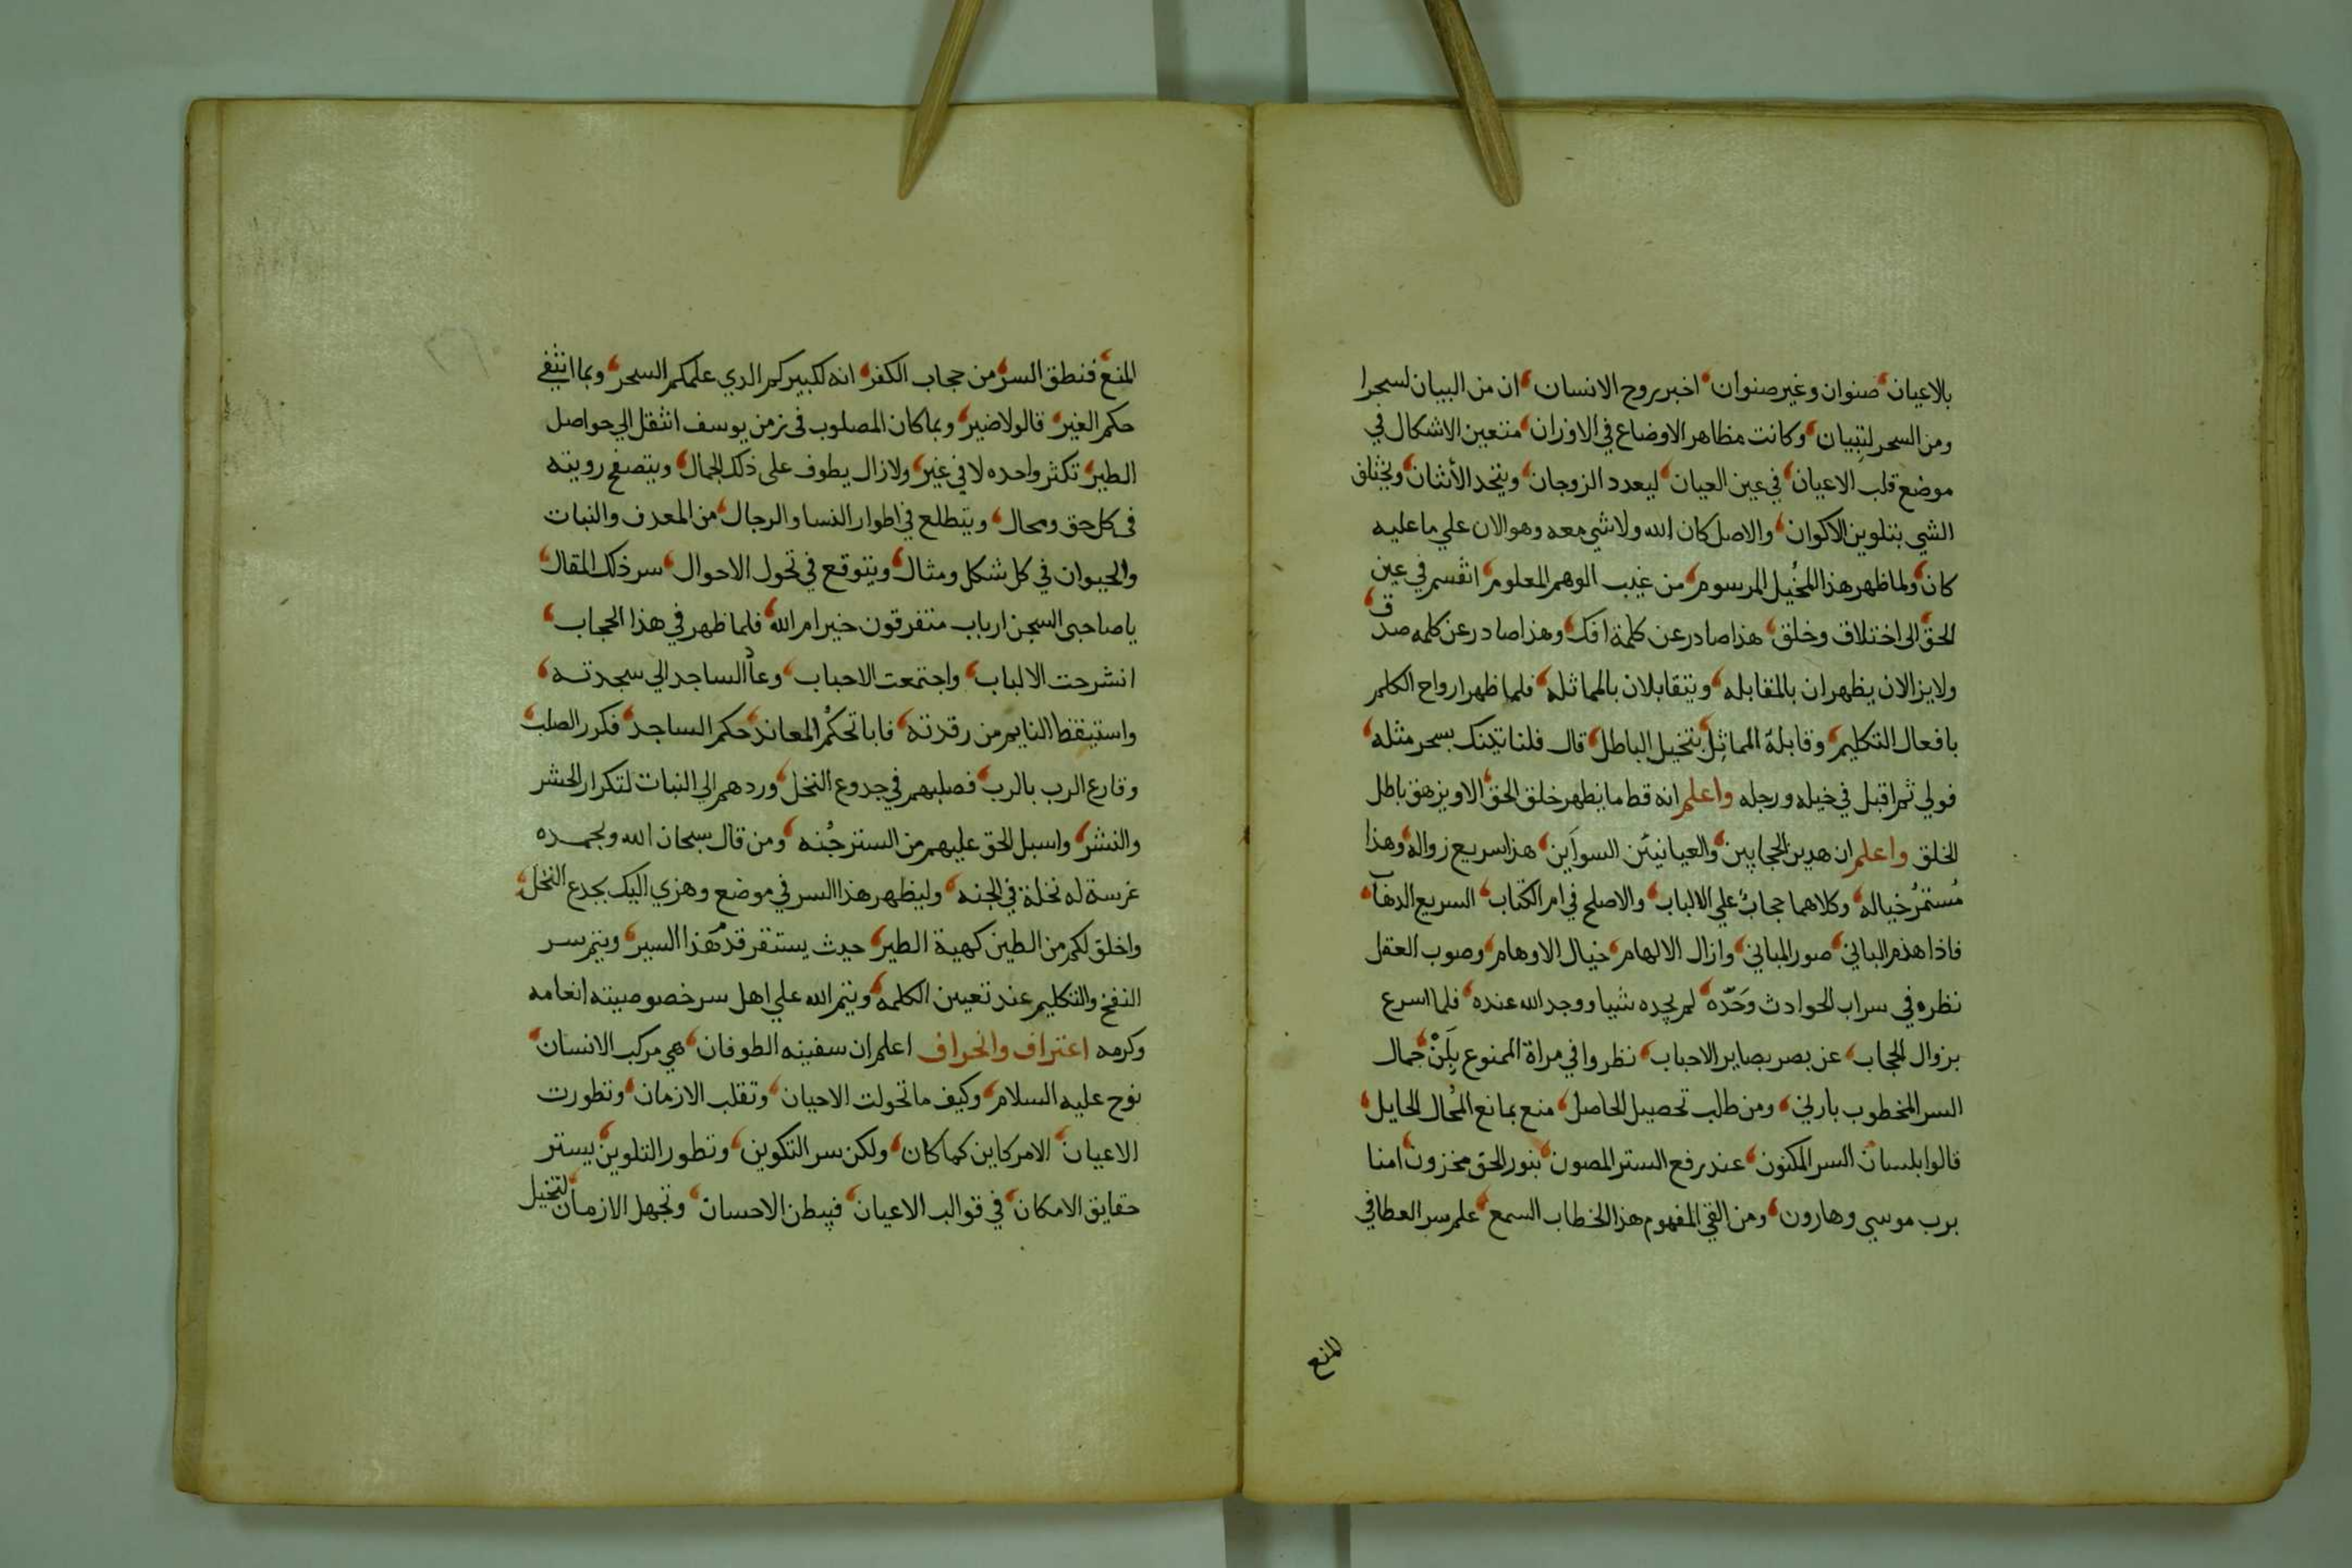 بالاعيان صنوان وغير صنوان اخبر بروح الانسان ان من البيان لسحرا
ومن السحر لتبيان وكانت مظاهر الاوضاع في الاوزان متعين الاشكال في
موضع قلب الاعيان في عين العيان ليعدد الزوجان ويتحد الأثنان ويختلف
الشي بتلوين الاكوان والاصل كان الله ولا شي معه وهو الان علي ما عليه
كان ولما ظهر هذا المخيل المرسوم من غيب الوهم المعلوم انقسم في عين
الحق الى اختلاف وخلق هذا صادر عن كلمة افك وهذا صادر عن كلمه صدق
ولا يزالان يظهران بالمقابله ويتقابلان بالمماثله فلما ظهر ارواح الكلم
بافعال التكليم وقابلة المماثل بتخيل الباطل قال فلناتينك بسحر مثله
فولي ثم اقبل في خيله ورجله واعلم انه قط ما يظهر خلق الحق الا ويزهق باطل
الخلق واعلم ان هدين الحجابين والعيانيئن السوآين هذا سريع زواله وهذا
مُستمرُ خياله وكلاهما حجابٌ علي الالباب والاصلح في ام الكتاب السريع الدهاب
فاذا هذم الباني صور المباني وازال الالهام خيال الاوهام وصوب العقل
نظره في سراب الحوادث وَحَدّه لم يجده شيا ووجد الله عنده فلما اسرع
بزوال الحجاب عن بصر بصاير الاحباب نظروا في مراة الممنوع بِلَنْ جمال
السر المخطوب بارني ومن طلب تحصيل الحاصل منع بمانع المُحال الحايل
قالوا بلسان السر المكنون عند رفع الستر المصون بنور الحق مخزون امنا
برب موسي وهارون ومن القي المفهوم هذا الخطاب السمع علم سر العطا في
المنع
المنع فنطق السر من حجاب الكفر انه لكبيركم الدي علمكم السحر وبما انتفي
حكم الغير قالو لا ضير وبما كان المصلوب في زمن يوسف انتقل الي حواصل
الطير تكثر واحده لا في غير ولا زال يطوف على ذلك الجمال ويتصفح رويته
في كل حق ومحال ويتطلع في اطوار النسا والرجال من المعدن والنبات
والحيوان في كل شكل ومثال ويتوقع في تحول الاحوال سر ذلك المقال
يا صاحبى السجن ارباب متفرقون خير ام الله فلما ظهر في هذا الحجاب
انشرحت الالباب واجتمعت الاحباب وعاد الساجد الي سجدته
واستيقظ النايم من رقدته فابا تحكم المعاند حكم الساجد فكرر الصلب
وقارع الرب بالرب فصلبهم في جدوع النخل وردهم الي النبات لتكرار الحشر
والنشر واسبل الحق عليهم من الستر جُنه ومن قال سبحان الله وبحمده
غرسة له نخلة في الجنه وليظهر هذا السر في موضع وهزي اليك بجدع النخل
واخلق لكم من الطين كهية الطير حيث يستقر قدم هذا السير ويتم سر
النفخ والتكليم عند تعيين الكلمه ويتم الله علي اهل سر خصوصيته انعامه
وكرمه اعتراف وانحراف اعلم ان سفينه الطوفان هي مركب الانسان
نوح عليه السلام وكيف ما تحولت الاحيان وتقلب الازمان وتطورت
الاعيان الامر كاين كما كان ولكن سر التكوين وتطور التلوين يستر
حقايق الامكان في قوالب الاعيان فيبطن الاحسان وتجهل الازمان لتخيل